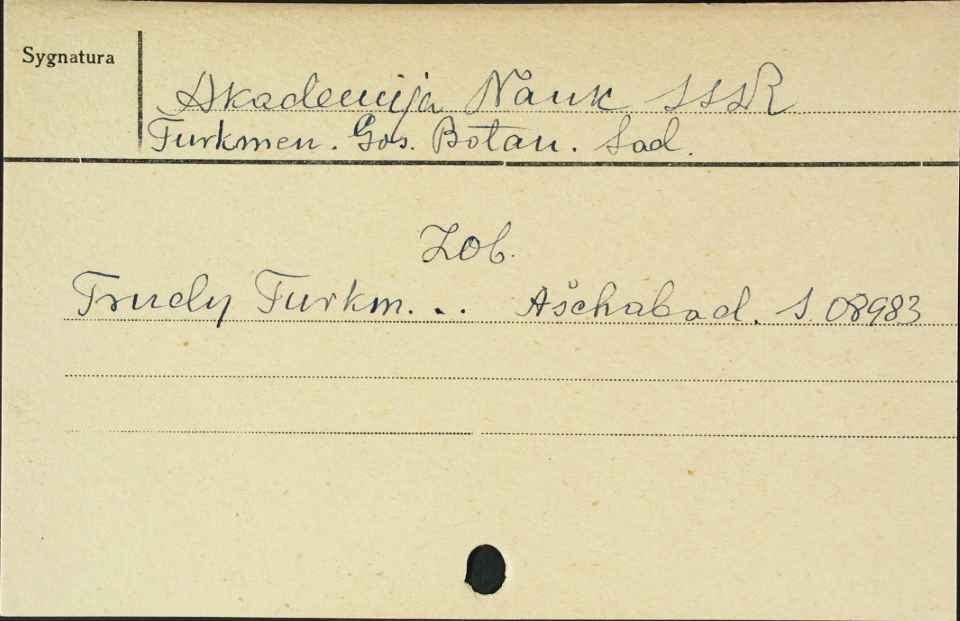 Sygnatura
Akademija Nauk SSSR
Turkmen. Gos. Botan. Sad.
Zob.
Trudy Turkm... Ašchabad. S. 08983